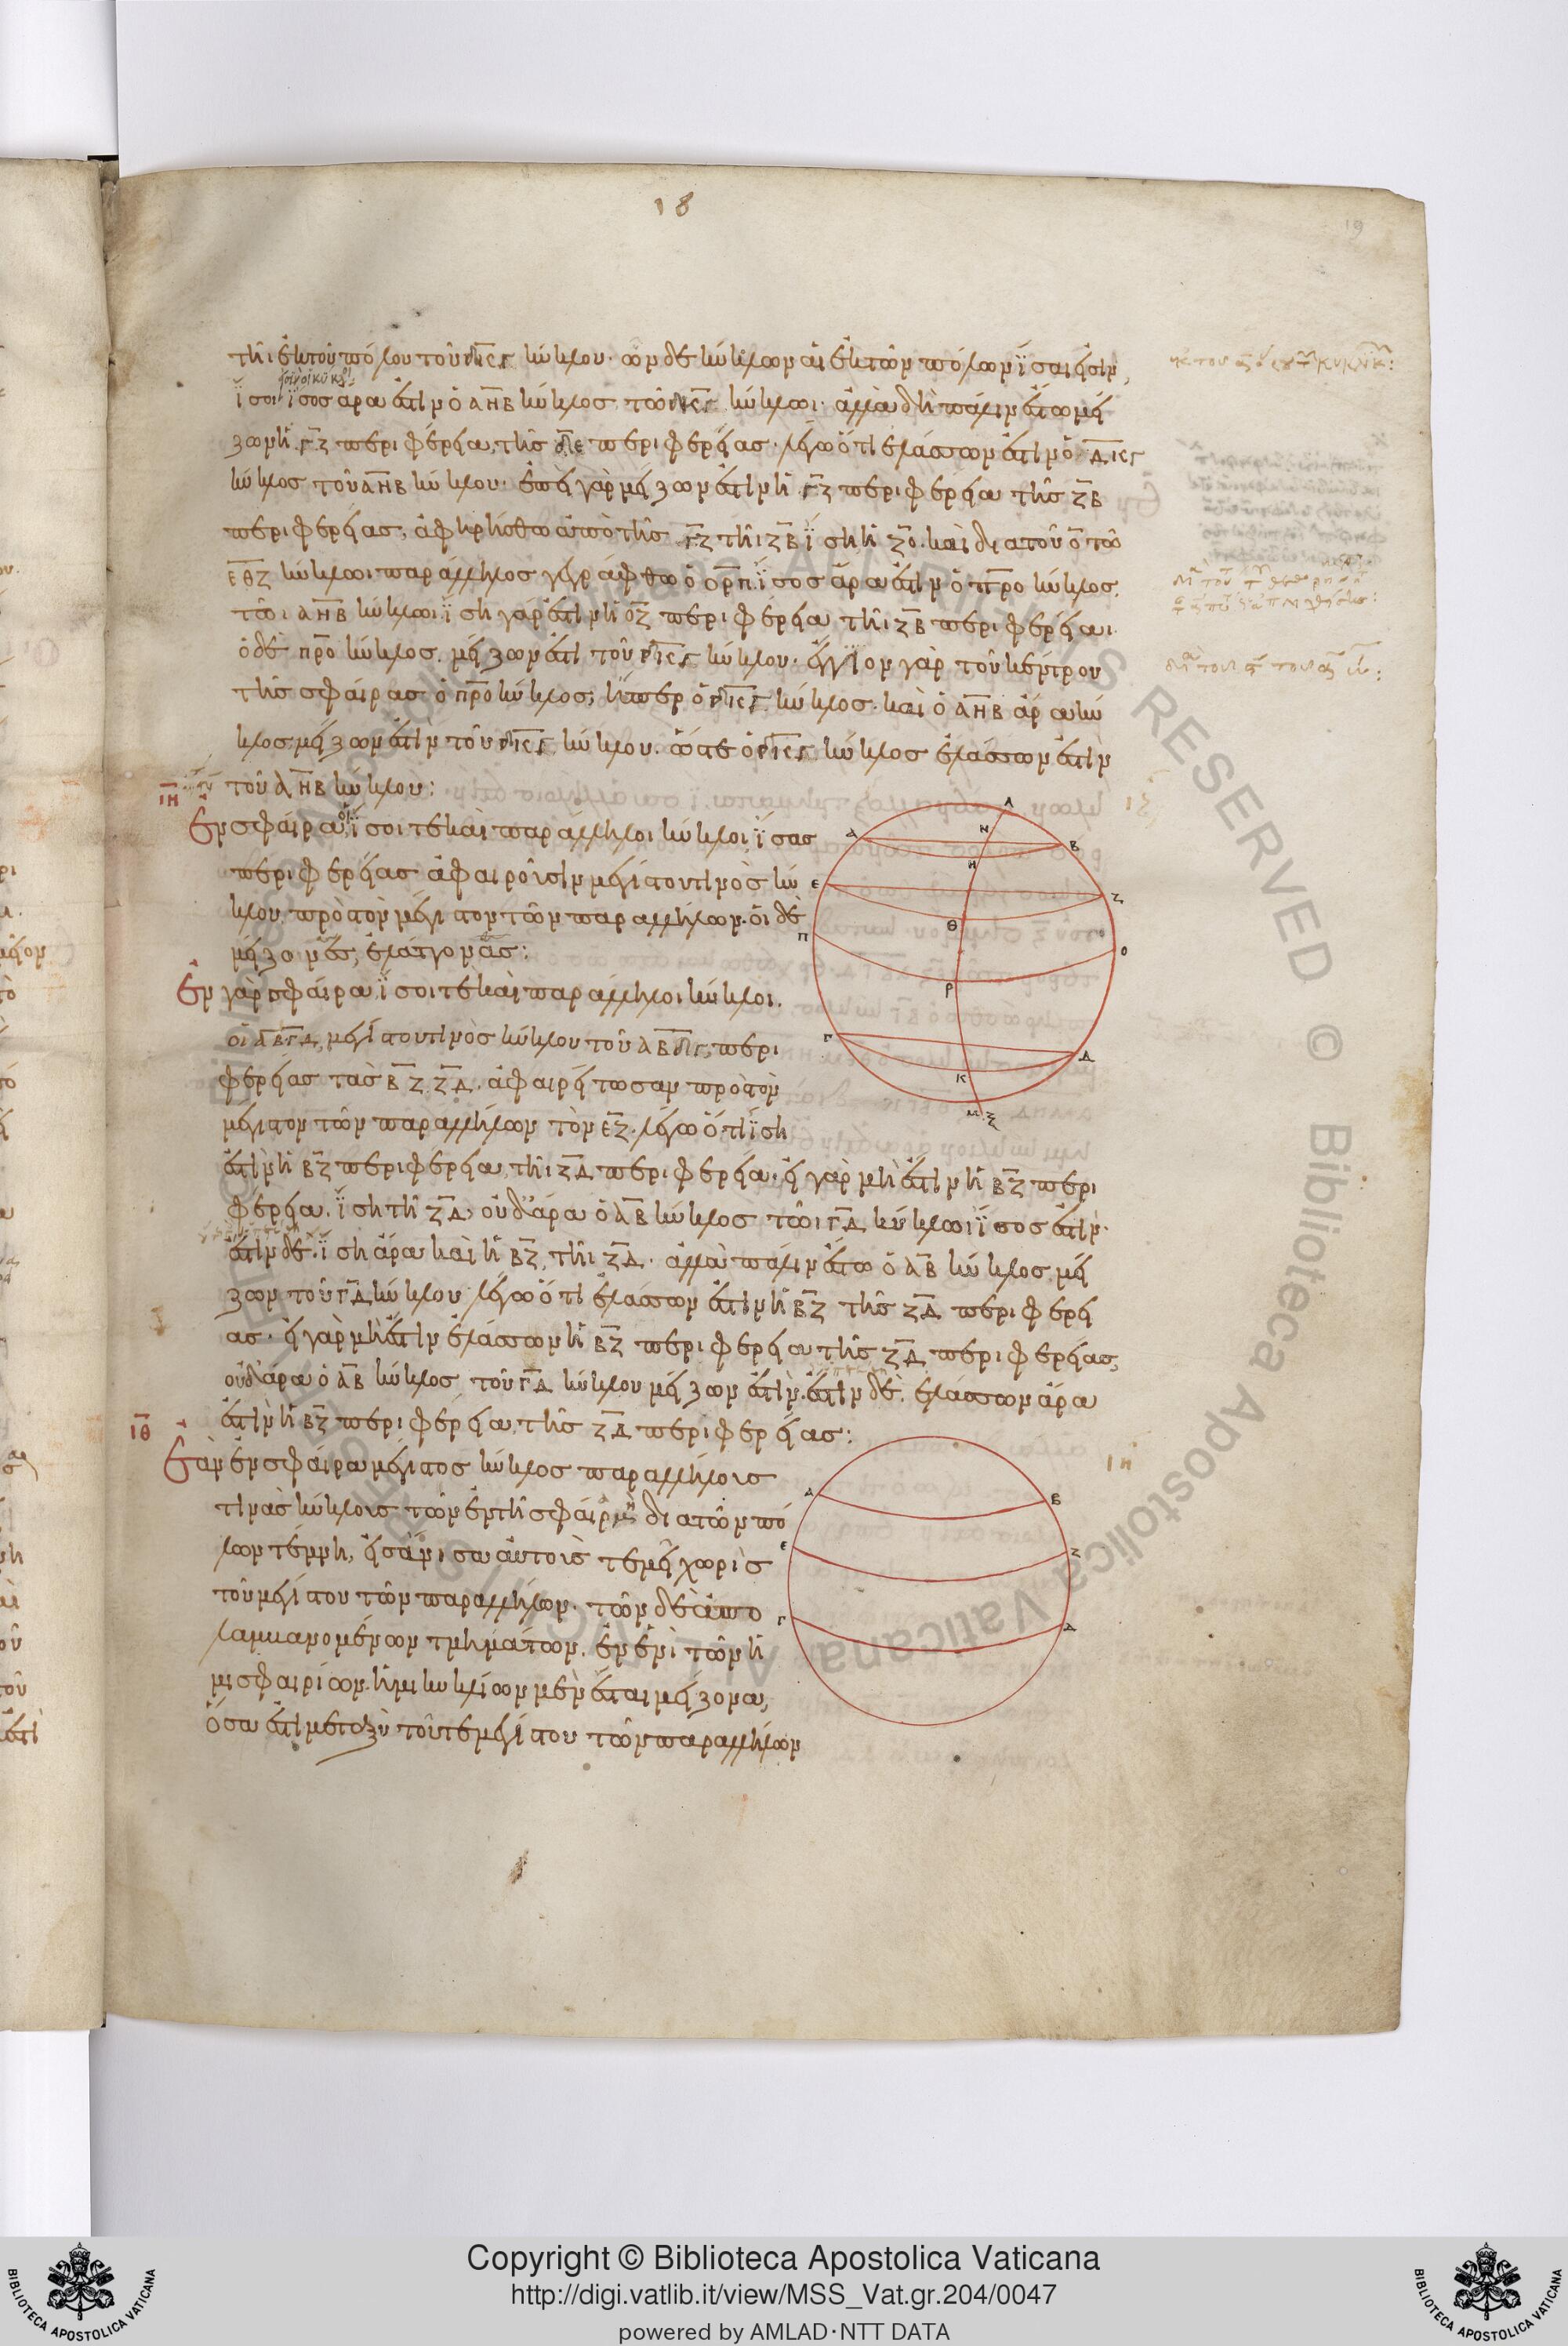 18
19
τῆι ἐκ τοῦ πόλου τοῦ ΔΚΓ κύκλου· ὧν δὲ κύκλων αἱ ἐκ τῶν πόλων ἴσαι εἰσὶν,
ἴσοι ἴσος ἄρα ἐστὶν ὁ ΑΗΒ κύκλος τῶι ΔΚΓ κύκλωι· ἀλλὰ δὴ πάλιν ἔστω μεί
ζων ἡ ΓΖ περιφέρεια, τῆς περιφερείας· λέγω ὅτι ἐλάσσων ἐστὶν ὁ ΔΚΓ
κύκλος τοῦ ΑΗΒ κύκλου· ἐπεὶ γὰρ μείζων ἐστὶν ἡ ΓΖ περιφέρεια τῆς ΖΒ
περιφερείας, ἀφηρήσθω ἀπὸ τῆς ΓΖ τῆι ΖΒ ἴση ἡ ΖΟ· καὶ διὰ τοῦ Ο τῶ
ΕΘΖ κύκλωι παράλληλος γεγράφθω ὁ ΟΡΠ· ἴσος ἄρα ἐστὶν ὁ ΠΡΟ κύκλος,
τῶι ΑΗΒ κύκλωι· ἴση γάρ ἐστιν ἡ ΟΖ περιφέρεια τῆι ΖΒ περιφερείαι·
ὁ δὲ ΠΡΟ κύκλος, μείζων ἐστὶ τοῦ ΔΚΓ κύκλου· ἔγγιον γὰρ τοῦ κέντρου
τῆς σφαίρας ὁ ΠΡΟ κύκλος, ἤπερ ὁ ΔΚΓ κύκλος· καὶ ὁ ΑΗΒ ἄρα κύ
κλος μείζων ἐστὶν τοῦ ΔΚΓ κύκλου· ὥστε ὁ ΔΚΓ κύκλος ἐλάσσων ἐστὶν
τοῦ ΑΗΒ κύκλου:
ΙΗ
Ἐν σφαίρα οἱ ἴσοι τε καὶ παράλληλοι κύκλοι ἴσας
περιφερείας ἀφαιροῦσιν μεγίστου τινὸς κύ
κλου πρὸς τὸν μέγιστον τῶν παραλλήλων· οἱ δὲ
μείζονες, ἐλάττονας:
Ἐν γὰρ σφαίρα, ἴσοι τε καὶ παράλληλοι κύκλοι.
οἱ ΑΒ ΓΔ, μεγίστου τινὸς κύκλου τοῦ ΑΒΔΓ, περι
φερείας τὰς ΒΖ ΖΔ, ἀφαιρείτωσαν πρὸς τὸν
μέγιστον τῶν παραλλήλων τὸν ΕΖ· λέγω ὅτι ἴση
ἐστὶν ἡ ΒΖ περιφέρεια, τῆι ΖΔ περιφερεία· εἰ γὰρ μή ἐστιν ἡ ΒΖ περι
φέρεια, ἴση τῆ ΖΔ, οὐδ' ἄρα ὁ ΑΒ κύκλος τῶι ΓΔ κύκλωι ἴσος ἐστὶν·
ἔστιν δέ· ἴση ἄρα καὶ ἡ ΒΖ, τῆι ΖΔ· ἀλλὰ πάλιν ἔστω ὁ ΑΒ κύκλος μεί
ζων τοῦ ΓΔ κύκλου· λέγω ὅτι ἐλάσσων ἐστὶν ἡ ΒΖ τῆς ΖΔ περιφερεί
ας· εἰ γὰρ μή ἐστιν ἐλάσσων ἡ ΒΖ περιφέρεια τῆς ΖΔ περιφερείας,
οὐδ' ἄρα ὁ ΑΒ κύκλος, τοῦ ΓΔ κύκλου μείζων ἐστὶν· ἔστιν δέ· ἐλάσσων ἄρα
ἐστὶν ἡ ΒΖ περιφέρεια, τῆς ΖΔ περιφερείας:
ΙΘ
Ἐὰν ἐν σφαίρα μέγιστος κύκλος παραλλήλους
τινὰς κύκλους τῶν ἐν τῆ σφαίρα μὴ διὰ τῶν πό
λων τέμνη, εἰς ἄνισα αὐτοὺς τεμεῖ χωρὶς
τοῦ μεγίστου τῶν παραλλήλων· τῶν δὲ ἀπο
λαμβανομένων τμημάτων, ἐν ἑνὶ τῶν ἡ
μισφαιρίων· ἡμικυκλίων μὲν ἔσται μείζονα,
ὅσα ἐστὶ μεταξὺ τοῦ τε μεγίστου τῶν παραλλήλων
Λ
Α Ν Β
Η
Ε Ζ
Θ
Π Ο
Ρ
Γ Δ
Κ
Μ Ξ
ΙΖ
Α Β
Ε Ζ
Γ Δ
ΙΗ
ALL RIGHTS RESERVED © Biblioteca Apostolica Vaticana
Copyright © Biblioteca Apostolica Vaticana
http://digi.vatlib.it/view/MSS_Vat.gr.204/0047
powered by AMLAD·NTT DATA
BIBLIOTECA APOSTOLICA VATICANA
BIBLIOTECA APOSTOLICA VATICANA